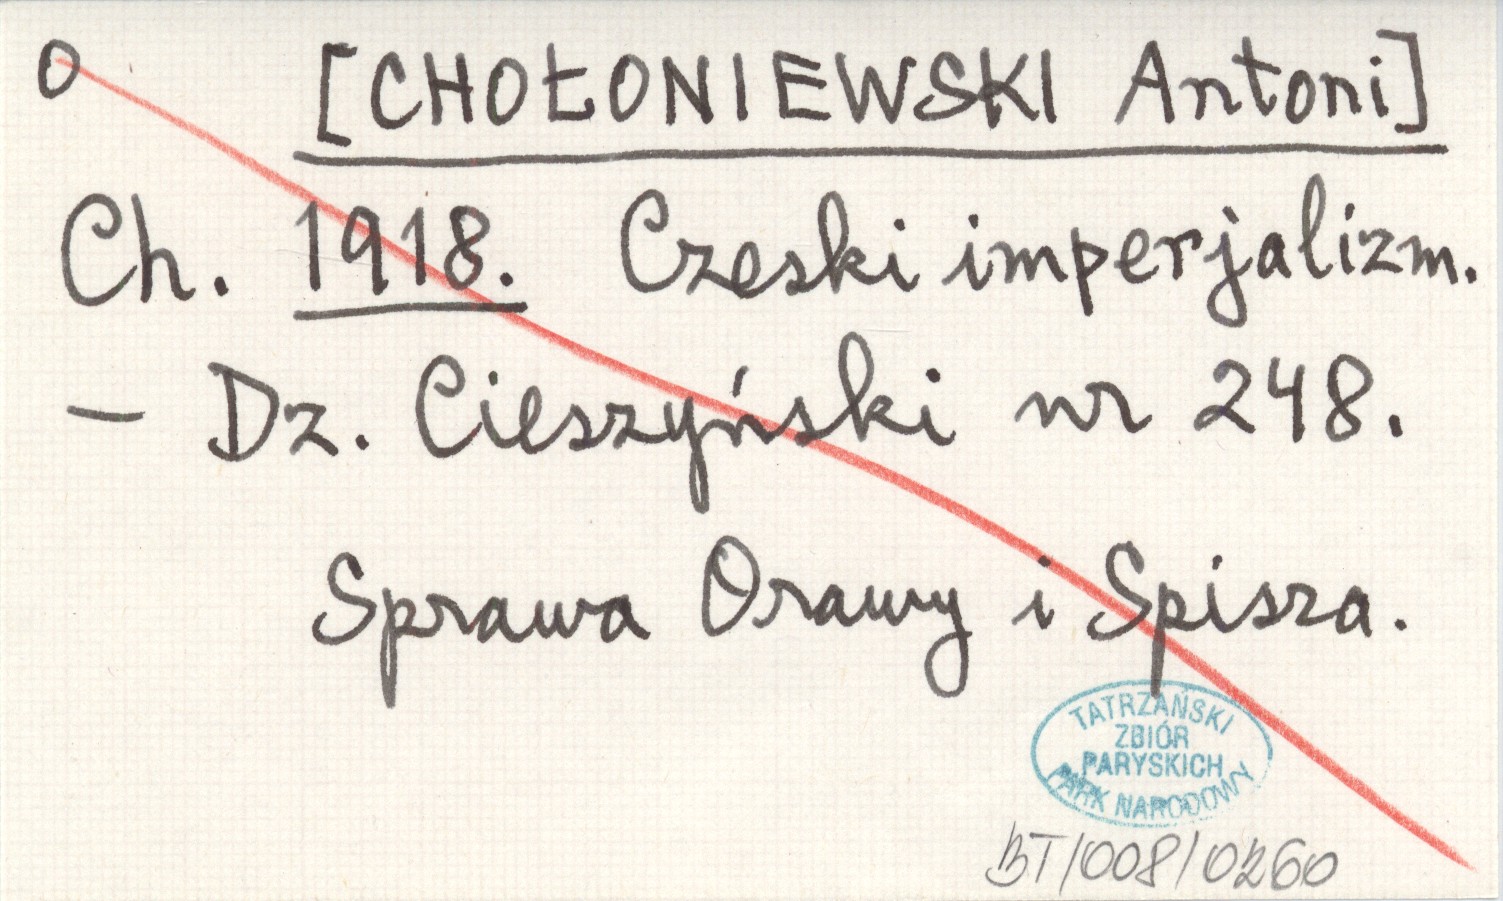 O [CHOŁONIEWSKI Antoni]
Ch. 1918. Czeski imperjalizm.
— Dz. Cieszyński nr 248.
Sprawa Orawy i Spisza.
TATRZAŃSKI
ZBIÓR
PARYSKICH
PARK NARODOWY
BT/008/0260